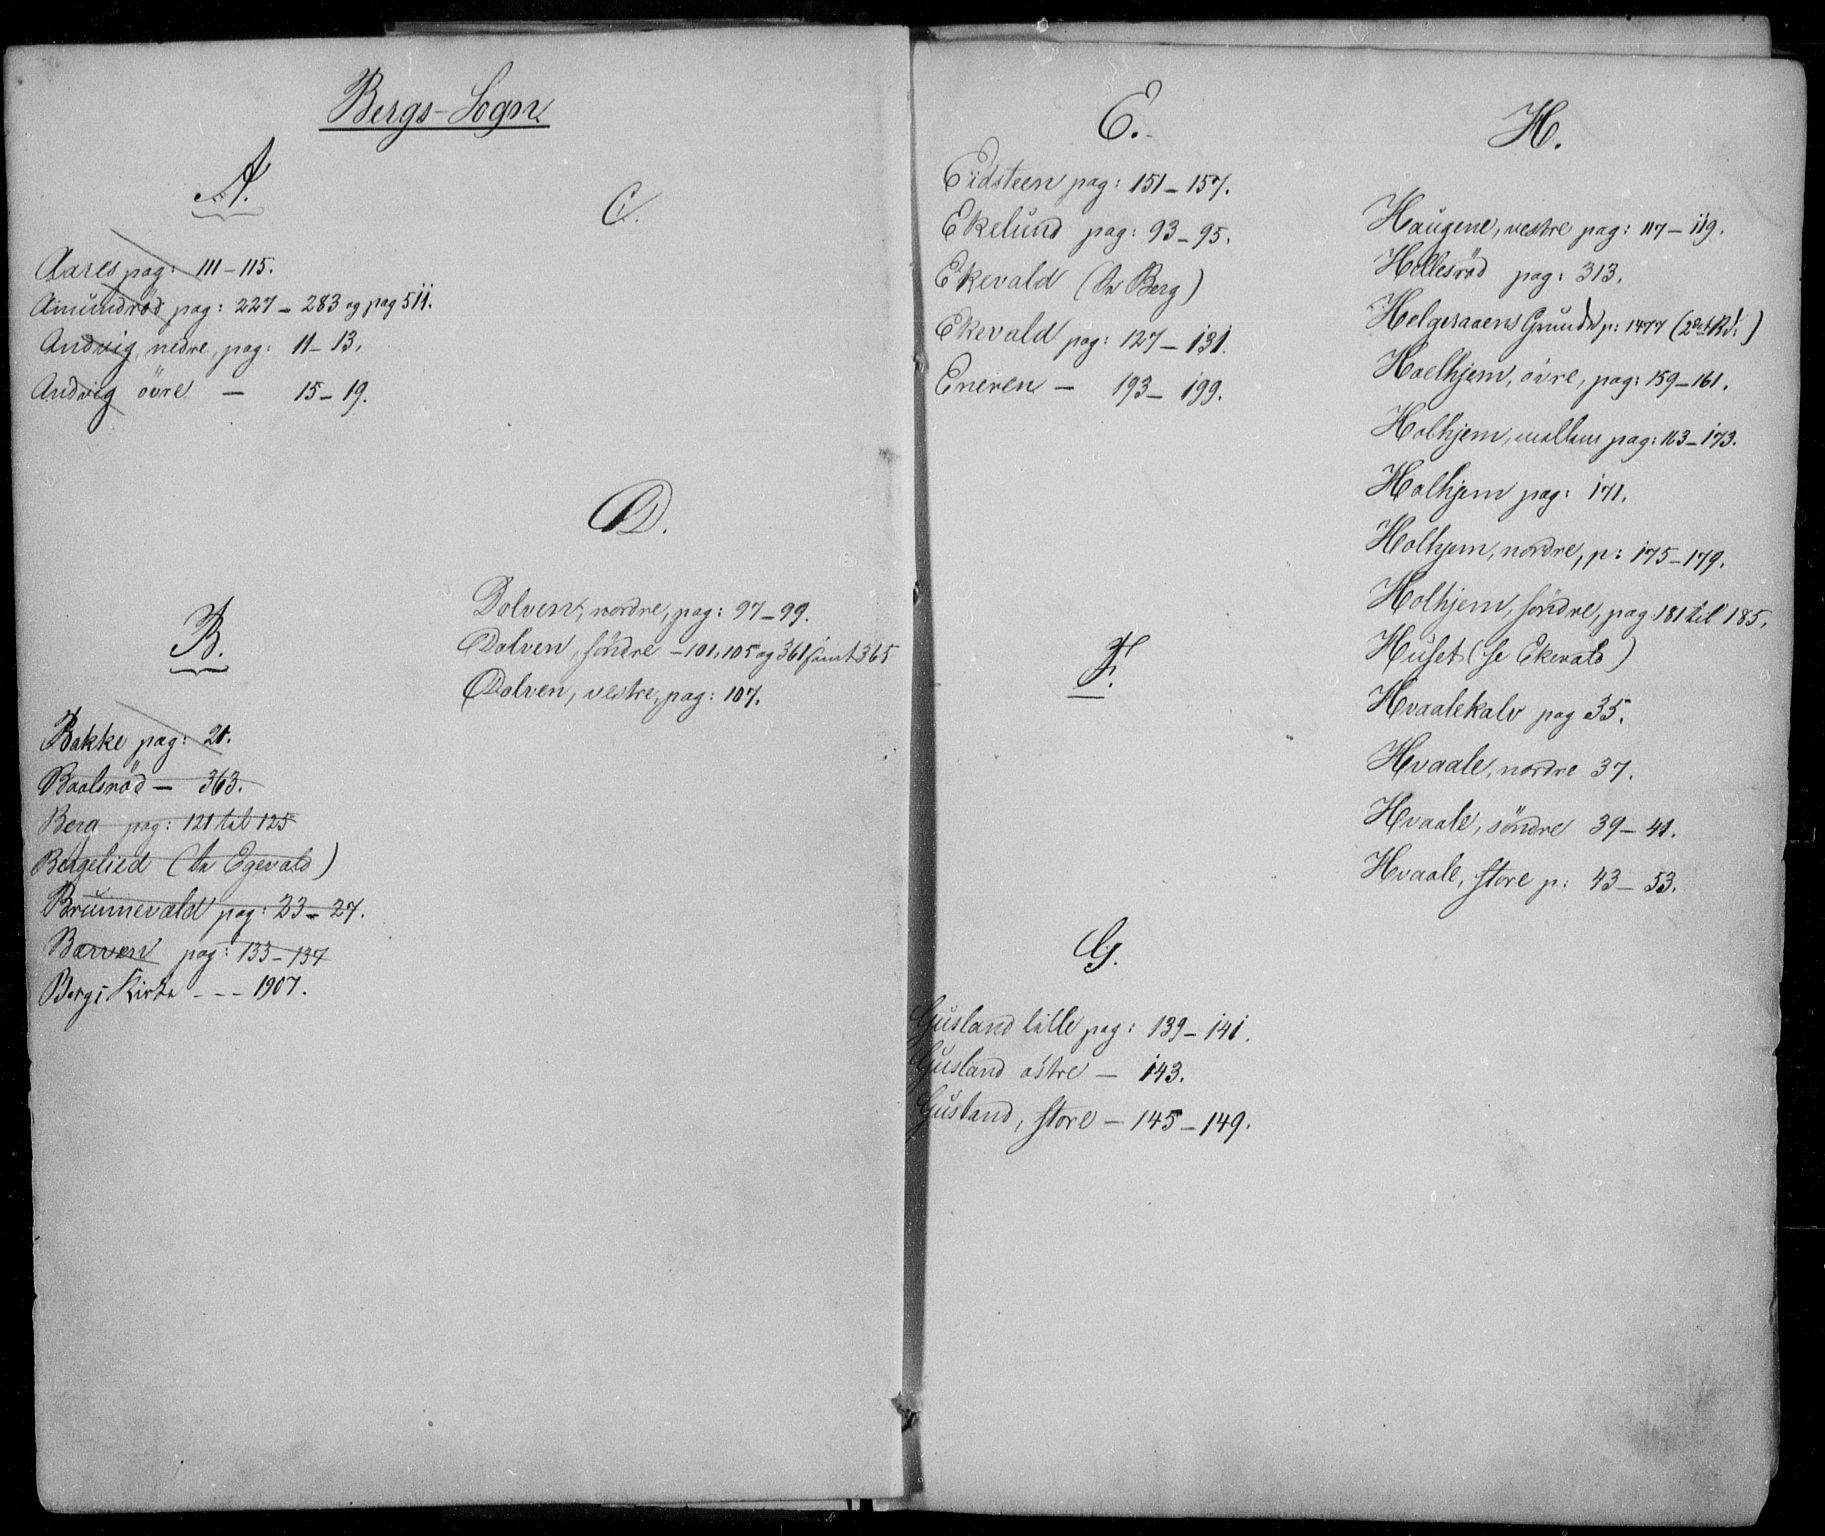 Bergs-Sogn
A.
Aares pag: 111-115.
Amundröd pag: 227-283 og pag 511.
Andvig, nedre, pag: 11-13.
Andvig övre - 15-19.
B.
Bakke pag: 21.
Baalsröd - 363.
Berg pag: 121 til 125
Bergelied (se Egevald)
Brunnevald pag: 23-27.
Bærven pag: 133-137
Bergs Kirke - - - 1907.
C.
D.
Dolven, nordre, pag: 97-99.
Dolven, söndre - 101, 105 og 361 samt 365
Dolven, vestre, pag: 107.
E.
Eidsteen pag: 151-157.
Ekelund pag: 93-95.
Ekevald (se Berg)
Ekevald pag: 127-131.
Eneren - 193-199.
F.
G.
Gusland lille pag: 139-141.
Gusland östre - 143.
Gusland, store - 145-149.
H.
Haugene, vestre pag: 117-119.
Hellesröd pag: 313.
Helgeraaens Grunde p: 1477 (2det Bd.)
Haelhjem, övre, pag: 159-161.
Holhjem, mellem pag: 163-173.
Holhjem pag: 171.
Holhjem, nordre, p: 175-179.
Holhjem, söndre, pag. 181 til 185.
Huset (se Ekevald)
Hvaalekalv pag 35.
Hvaale, nordre 37.
Hvaale, söndre 39-41.
Hvaale, store p: 43-53.